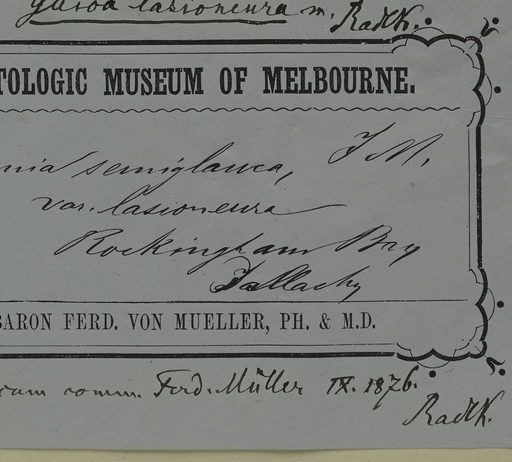 Gadoa lasioneura m. Radlk.
TOLOGIC MUSEUM OF MELBOURNE.
nia semiglauca, F M.
var. lasioneura
Rockingham Bay
Dallachy
BARON FERD. VON MUELLER, PH. & M.D.
cum comm. Ferd. Müller IX. 1876.
Radlk.